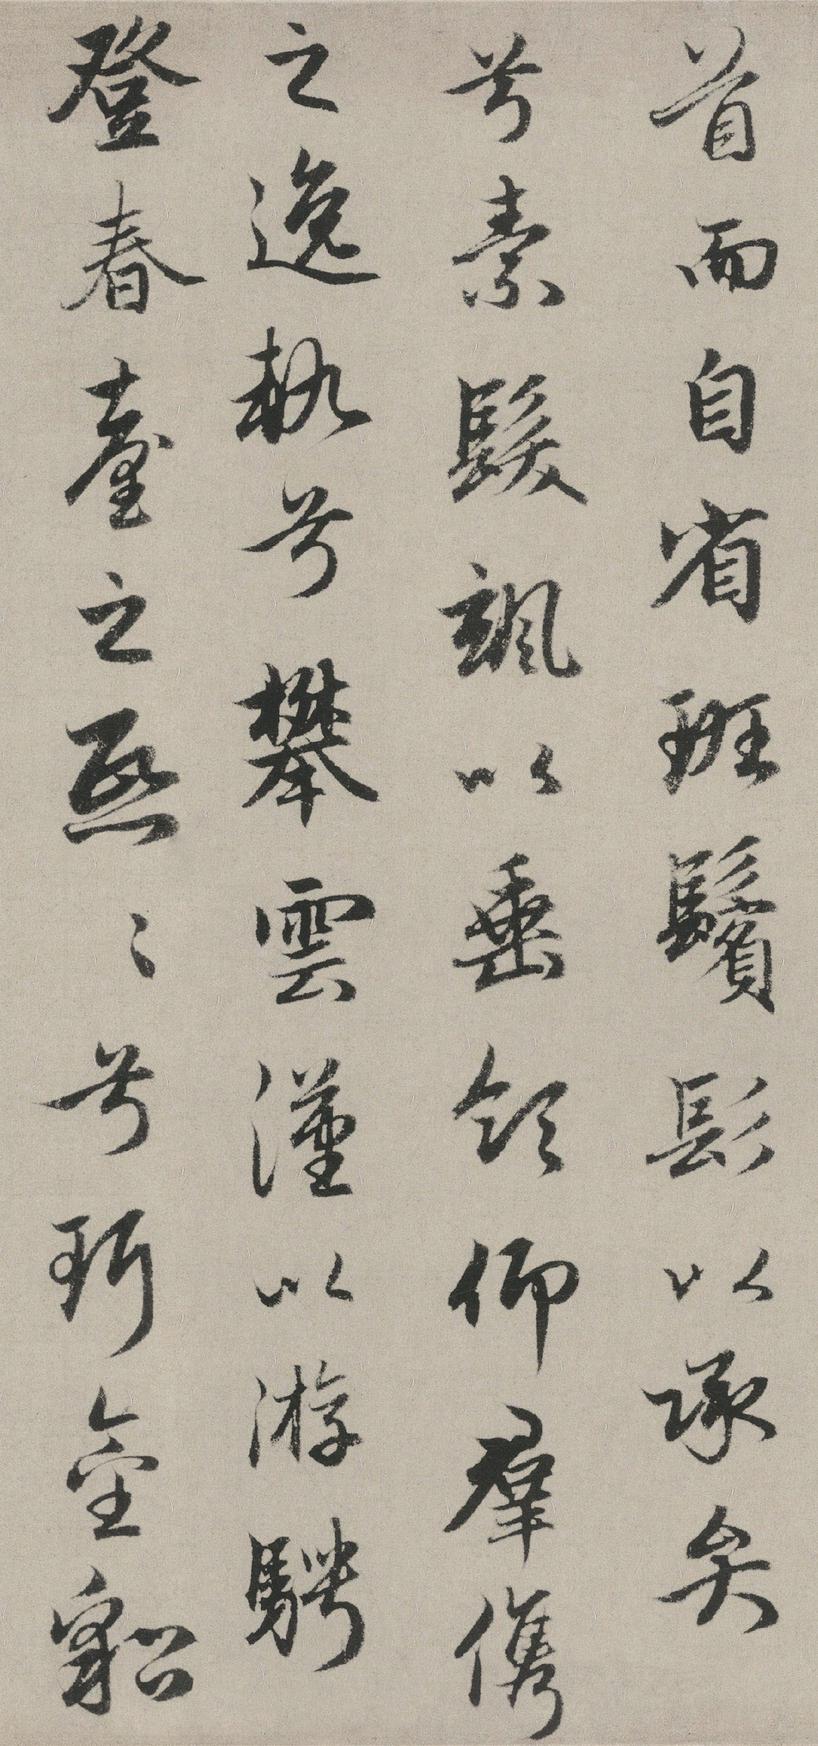 首而自省斑鬢髟以承矣
兮素髮颯以垂領仰羣儁
之逸軌兮攀雲漢以游騁
登春臺之熙〻兮珥金貂